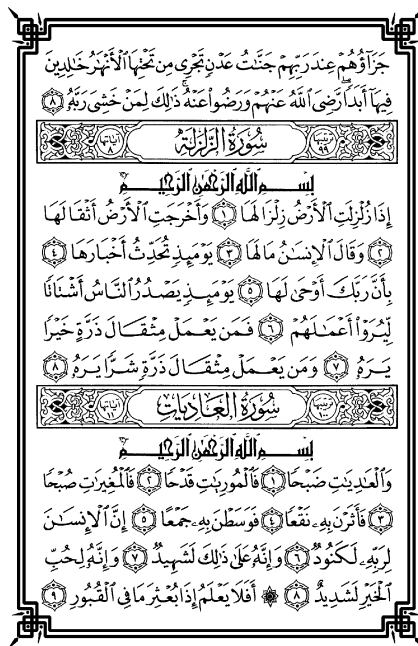 جَزَآؤُهُمْ عِندَ رَبِّهِمْ جَنَّٰتُ عَدْنٍ تَجْرِى مِن تَحْتِهَا ٱلْأَنْهَٰرُ خَٰلِدِينَ
فِيهَآ أَبَدًا ۖ رَّضِىَ ٱللَّهُ عَنْهُمْ وَرَضُوا۟ عَنْهُ ۚ ذَٰلِكَ لِمَنْ خَشِىَ رَبَّهُۥ ٨
ترتيبها ٩٩ سُورَةُ الزَّلْزَلَةِ آياتها ٨
بِسْمِ ٱللَّهِ ٱلرَّحْمَٰنِ ٱلرَّحِيمِ
إِذَا زُلْزِلَتِ ٱلْأَرْضُ زِلْزَالَهَا ١ وَأَخْرَجَتِ ٱلْأَرْضُ أَثْقَالَهَا
٢ وَقَالَ ٱلْإِنسَٰنُ مَا لَهَا ٣ يَوْمَئِذٍ تُحَدِّثُ أَخْبَارَهَا ٤
بِأَنَّ رَبَّكَ أَوْحَىٰ لَهَا ٥ يَوْمَئِذٍ يَصْدُرُ ٱلنَّاسُ أَشْتَاتًا
لِّيُرَوْا۟ أَعْمَٰلَهُمْ ٦ فَمَن يَعْمَلْ مِثْقَالَ ذَرَّةٍ خَيْرًا
يَرَهُۥ ٧ وَمَن يَعْمَلْ مِثْقَالَ ذَرَّةٍ شَرًّا يَرَهُۥ ٨
ترتيبها سُورَةُ العَادِيَاتِ آياتها ١١
بِسْمِ ٱللَّهِ ٱلرَّحْمَٰنِ ٱلرَّحِيمِ
وَٱلْعَٰدِيَٰتِ ضَبْحًا ١ فَٱلْمُورِيَٰتِ قَدْحًا ٢ فَٱلْمُغِيرَٰتِ صُبْحًا
٣ فَأَثَرْنَ بِهِۦ نَقْعًا ٤ فَوَسَطْنَ بِهِۦ جَمْعًا ٥ إِنَّ ٱلْإِنسَٰنَ
لِرَبِّهِۦ لَكَنُودٌ ٦ وَإِنَّهُۥ عَلَىٰ ذَٰلِكَ لَشَهِيدٌ ٧ وَإِنَّهُۥ لِحُبِّ
ٱلْخَيْرِ لَشَدِيدٌ ٨ ۞ أَفَلَا يَعْلَمُ إِذَا بُعْثِرَ مَا فِى ٱلْقُبُورِ ٩